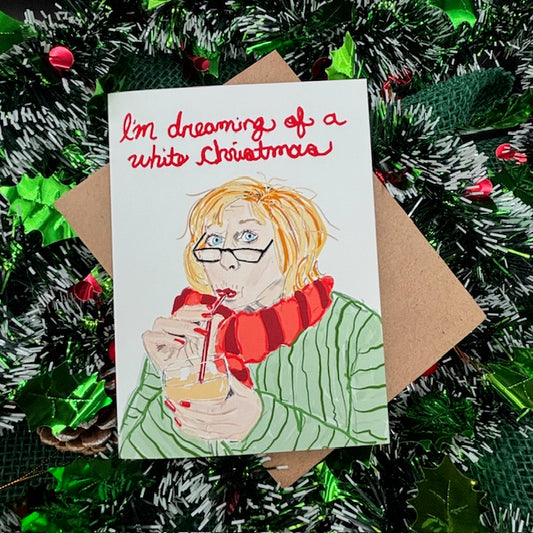 I'm dreaming of a
white Christmas